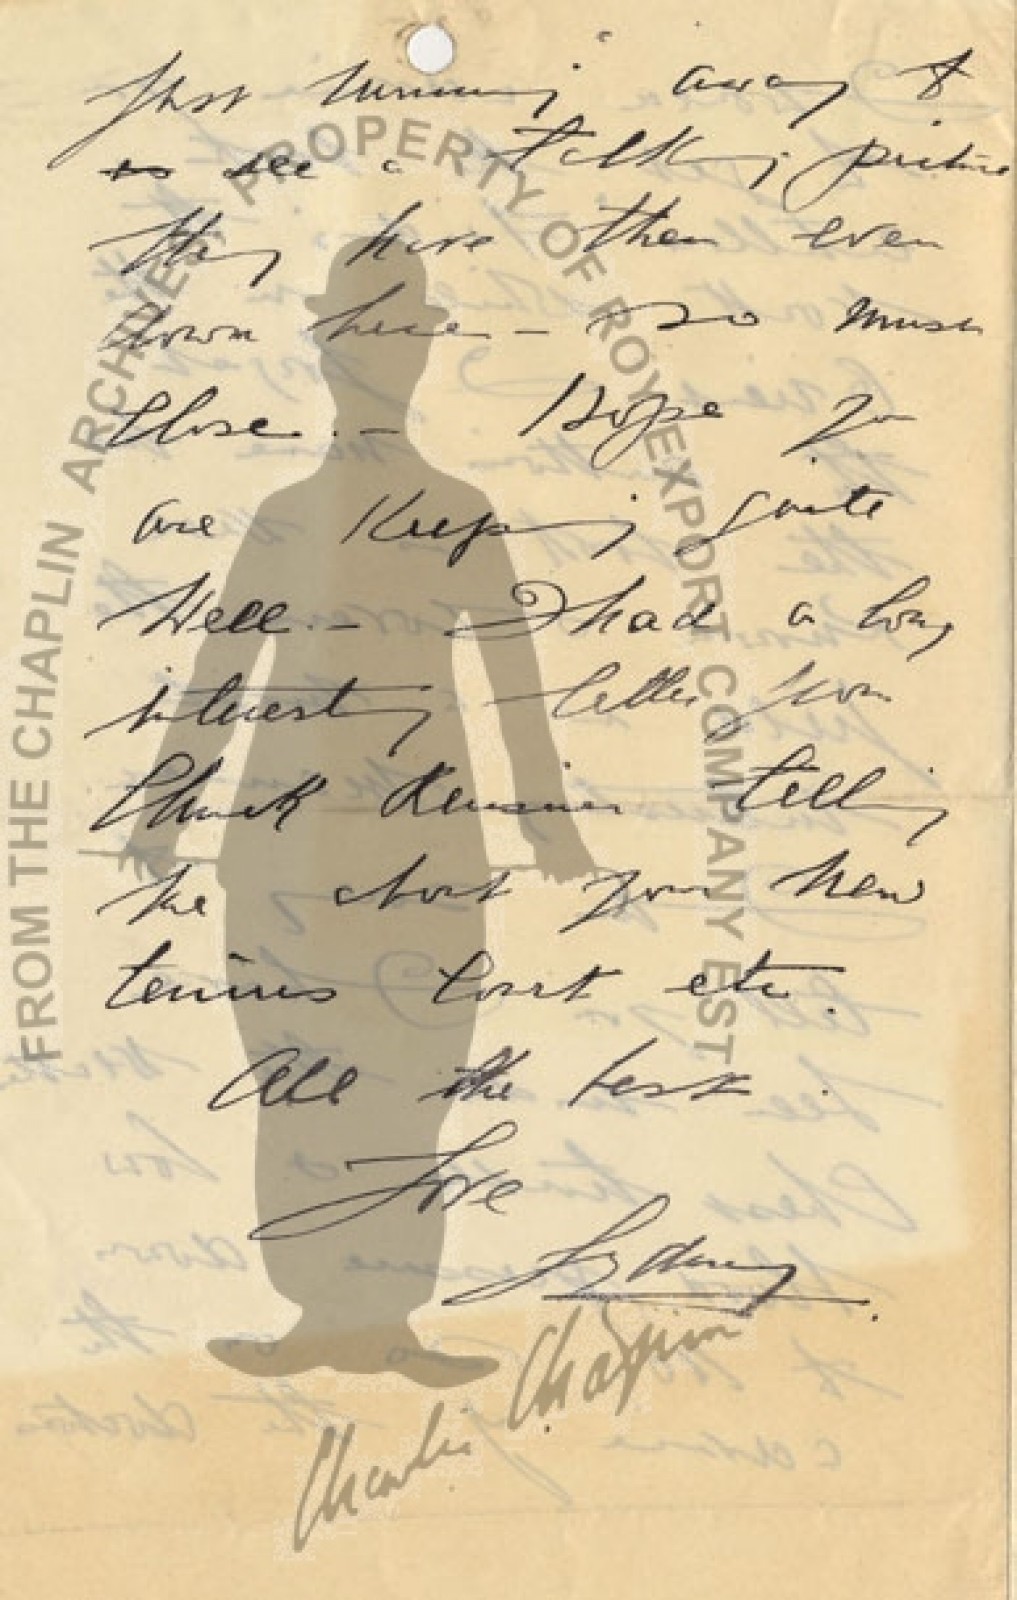 Just running away &
to see a talking picture
they have them even
down here – so must
close. – Hope you
are keeping quite
well. – I had a long
interesting letter from
Chuck Reisner telling
me about your new
tennis court etc.
All the best.
Love
Sydney.
FROM THE CHAPLIN ARCHIVES PROPERTY OF ROY EXPORT COMPANY EST
Charlie Chaplin